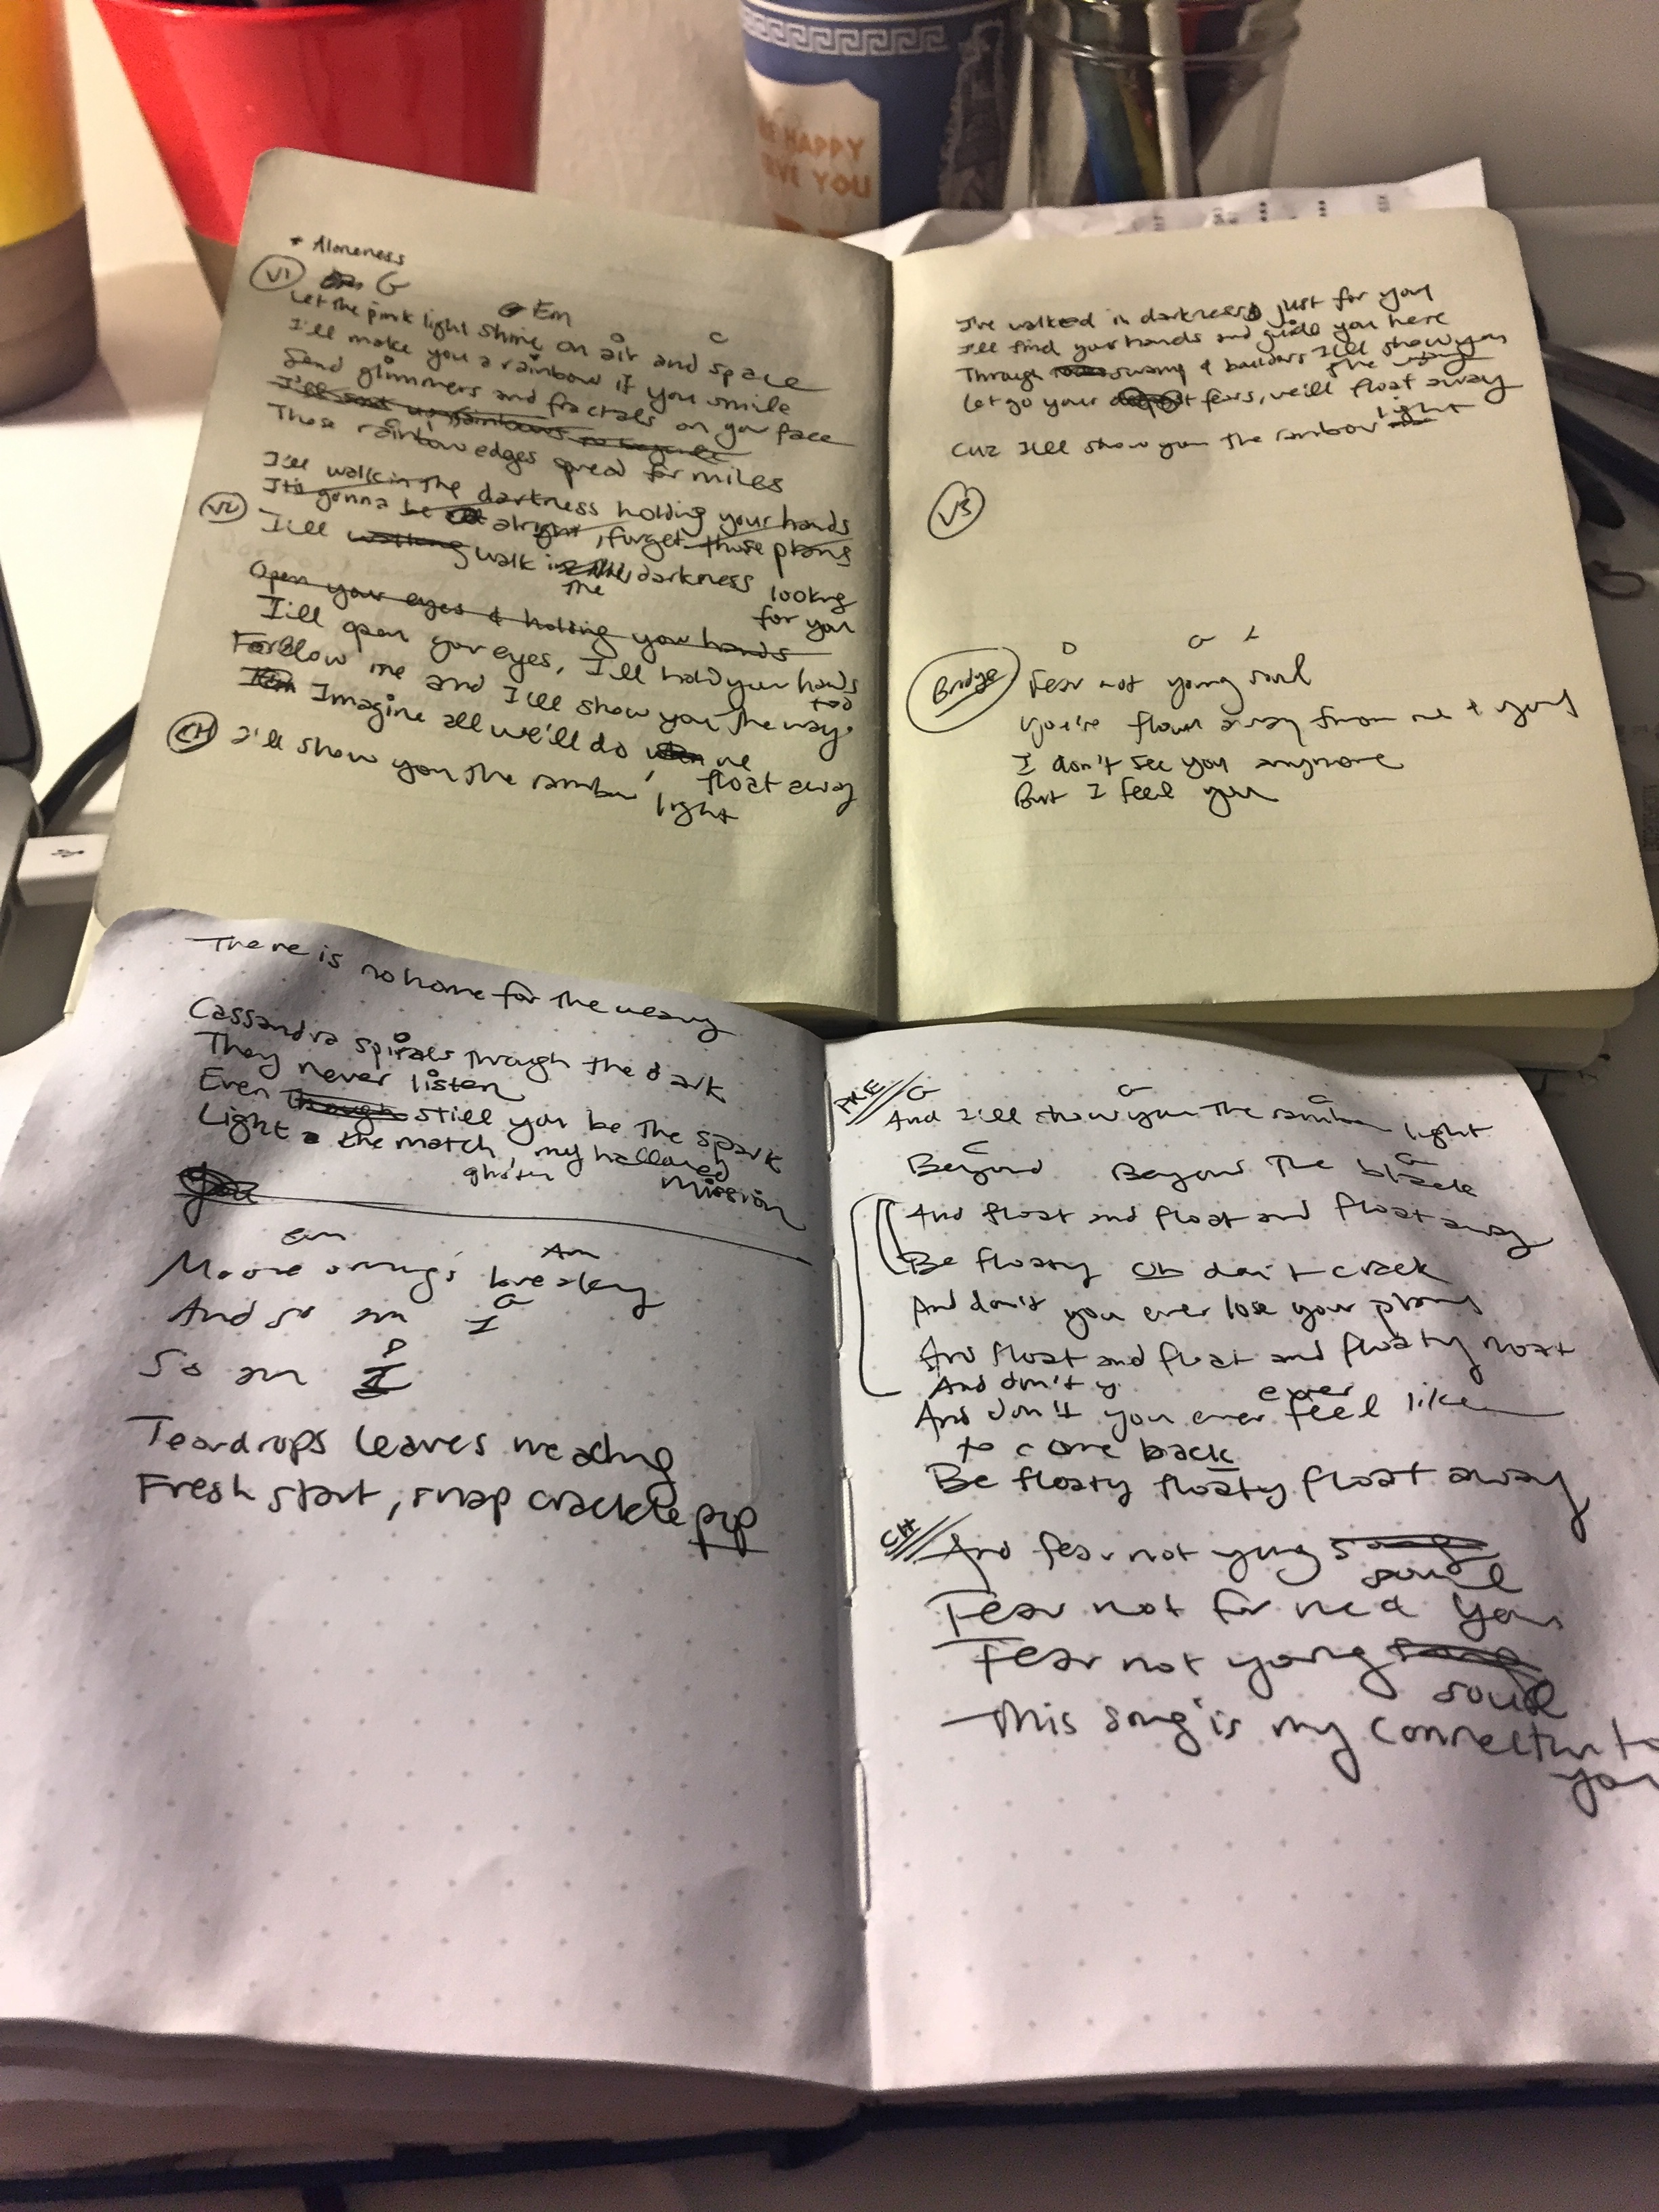 WE HAPPY
SERVE YOU
+ Aloneness
V1 G
Em
Let the pink light shine on air and space
C
I'll make you a rainbow if you smile
Send glimmers and fractals on your face
I'll send up rainbows
Those rainbow edges spread for miles
I'll walk in the darkness holding your hands
It's gonna be alright, forget those plans
V2 I'll walking walk in the darkness looking
for you
Open your eyes & holding your hands
I'll open your eyes, I'll hold your hands
too
Follow me and I'll show you the way
Imagine all we'll do when we
float away
CH I'll show you the rainbow light
I've walked in darkness just for you
I'll find your hands and guide you here
Through swamp & boulders I'll show you
the way
Let go your fears, we'll float away
Cuz I'll show you the rainbow light
V3
D G
Bridge Fear not young soul
You're flown away from me +
I don't see you anymore
But I feel you
There is no home for the weary
Cassandra spirals through the dark
They never listen
Even though still you be the spark
Light the match, my hallowed
mission
You
em Am
breaking
And so am I
G
D
So am I
Teardrops leaves
Fresh start, snap crackle pop
PRE// G G G
And I'll show you the rainbow light
C G
Beyond Beyond the black
And float and float and float away
Be floaty oh don't crack
And don't you ever lose your
And float and float and floaty
And don't y
ever
And don't you ever feel like
to come back
Be floaty floaty float away
CH// And fear not young song
soul
Fear not for need you
Fear not young song
soul
This song is my connection to
you